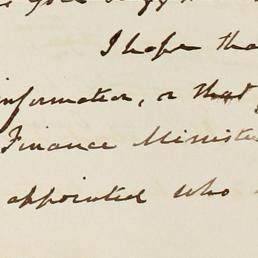 I hope tha
information, or that
Finance Ministe
appointed who